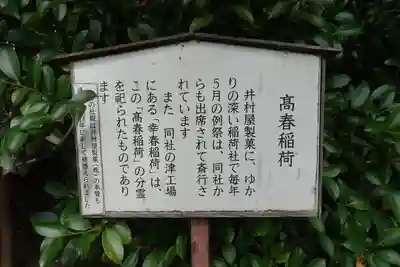 高春稲荷
井村屋製菓に、ゆか
りの深い稲荷社で毎年
5月の例祭は、同社か
らも出席されて斎行さ
れています
また、同社の津工場
にある「幸春稲荷」は、
この「高春稲荷」の分霊
を祀られたものであり
ます